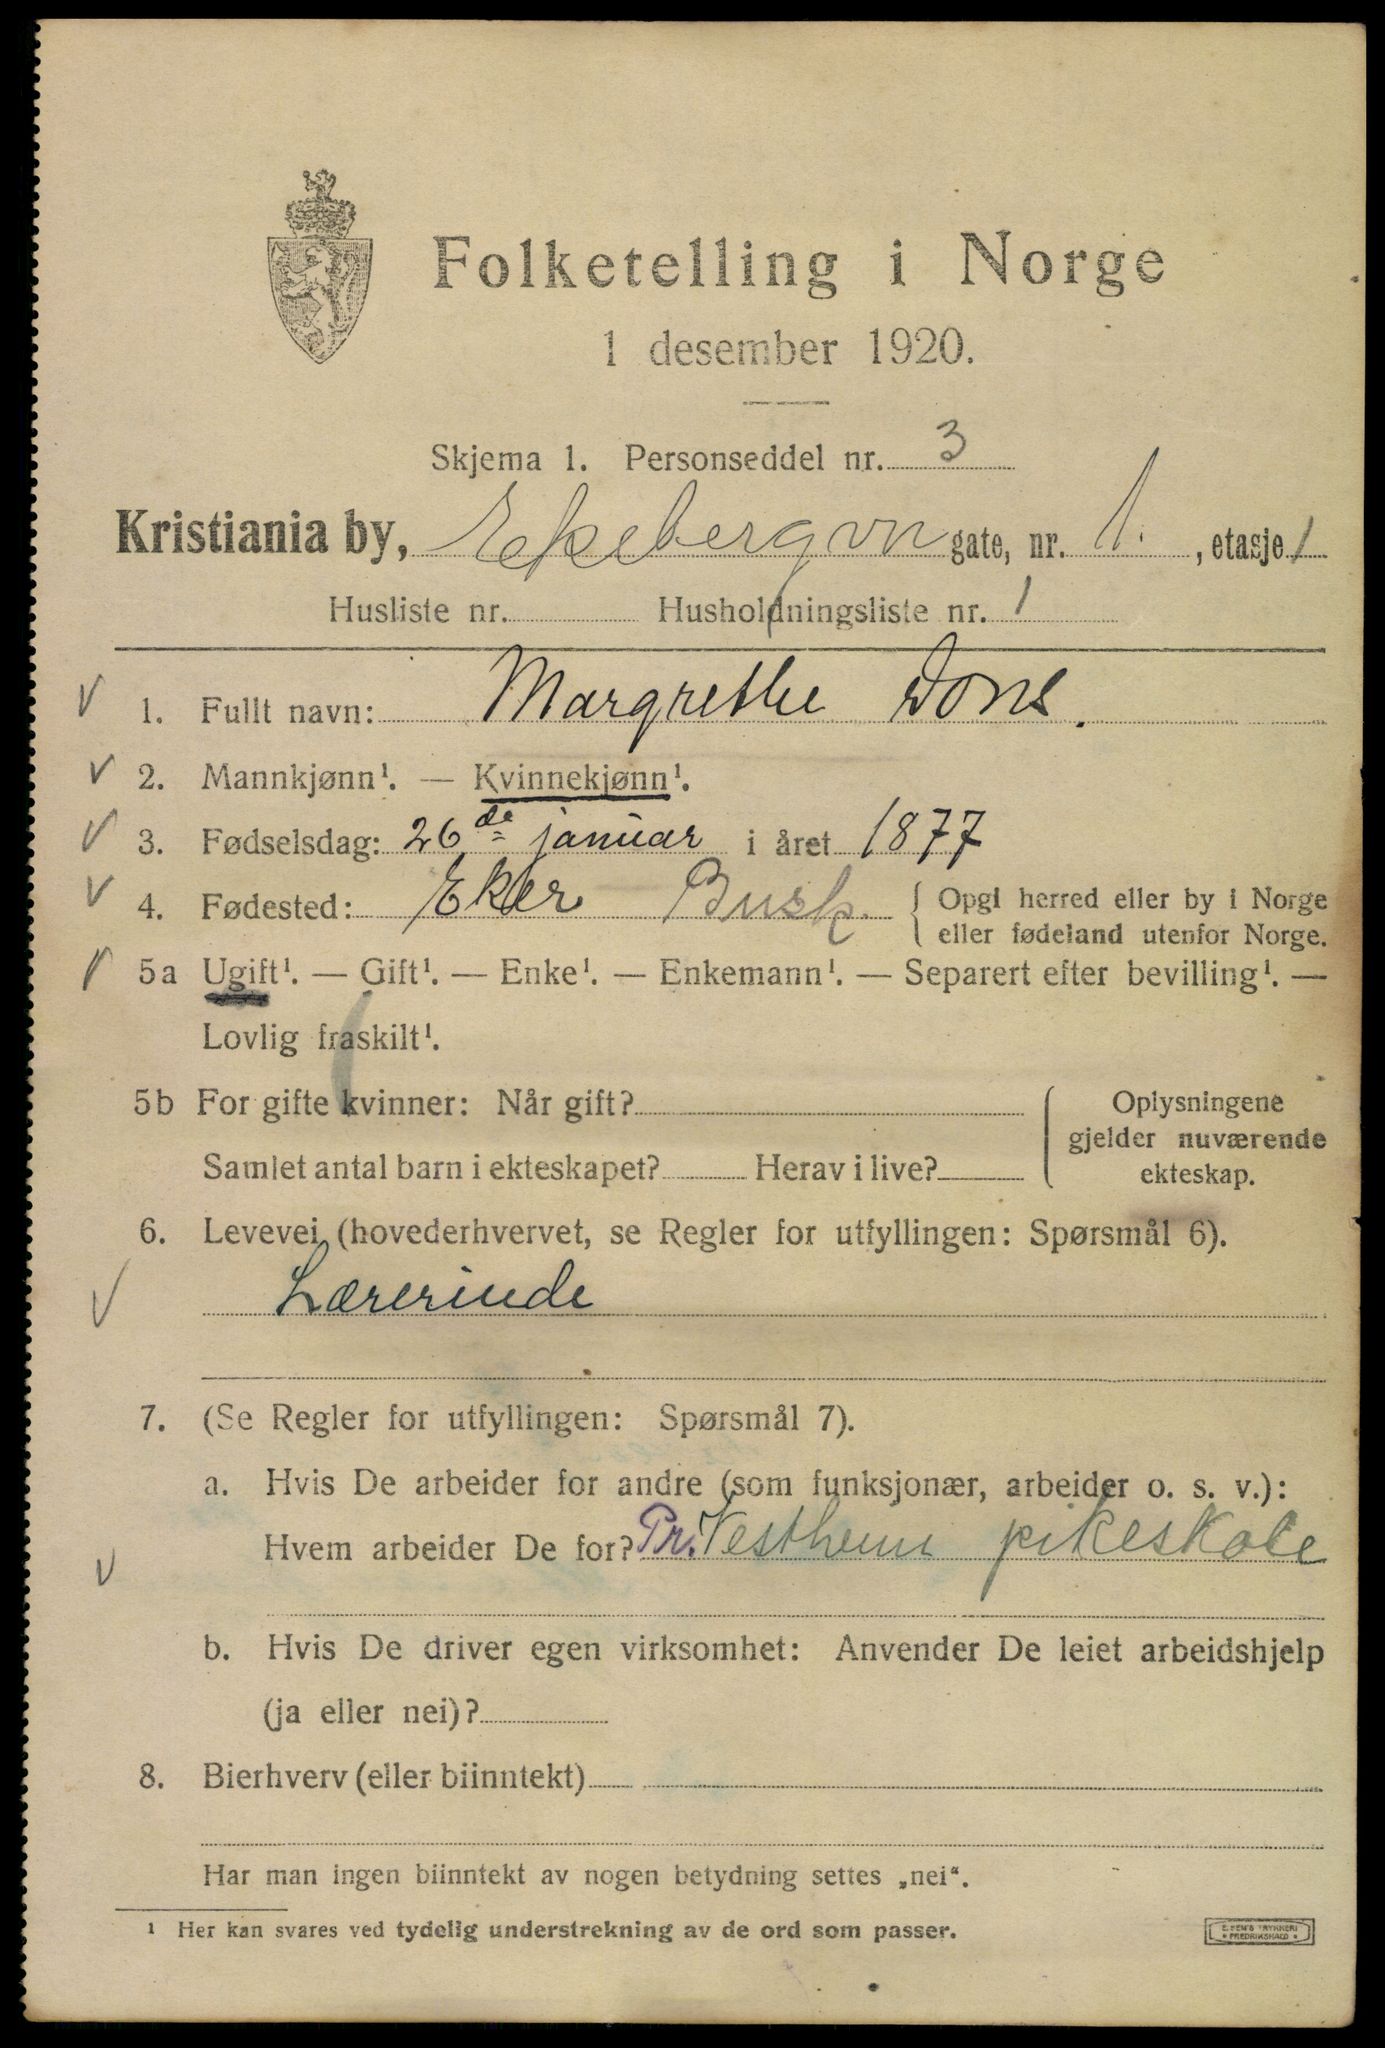 Folketelling i Norge
1 desember 1920.
Skjema 1. Personseddel nr. 3
Kristiania by, Ekebergvn gate, nr. 1., etasje 1
Husliste nr. Husholdningsliste nr. 1
1. Fullt navn: Margrethe Dons.
2. Mannkjønn¹. — Kvinnekjønn¹.
3. Fødselsdag: 26de januar i året 1877
4. Fødested: Eker Busk. { Opgi herred eller by i Norge
eller fødeland utenfor Norge.
5a Ugift¹. — Gift¹. — Enke¹. — Enkemann¹. — Separert efter bevilling¹. —
Lovlig fraskilt¹.
5b For gifte kvinner: Når gift? { Oplysningene
gjelder nuværende
Samlet antal barn i ekteskapet? Herav i live? ekteskap.
6. Levevei (hovederhvervet, se Regler for utfyllingen: Spørsmål 6).
Lærerinde
7. (Se Regler for utfyllingen: Spørsmål 7).
a. Hvis De arbeider for andre (som funksjonær, arbeider o. s. v.):
Hvem arbeider De for? Pr. Vestheim pikeskole
b. Hvis De driver egen virksomhet: Anvender De leiet arbeidshjelp
(ja eller nei)?
8. Bierhverv (eller biinntekt)
Har man ingen biinntekt av nogen betydning settes „nei“.
¹ Her kan svares ved tydelig understrekning av de ord som passer.
E. SEM'S TRYKKERI
FREDRIKSHALD